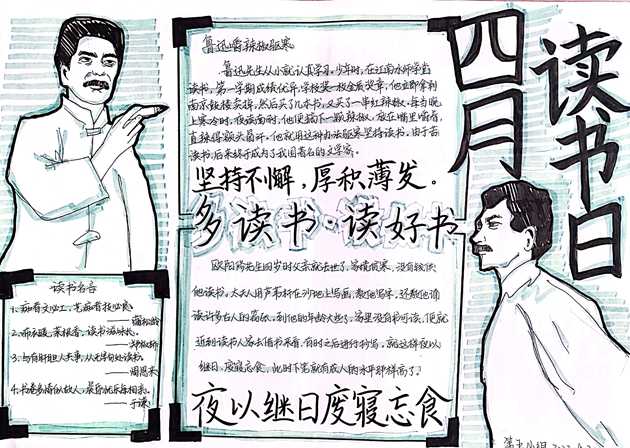 四月
读书日
鲁迅嚼辣椒驱寒
鲁迅先生从小就认真学习。少年时，在江南水师学堂
读书，第一学期成绩优异，学校奖一枚金质奖章，他立即拿到
南京鼓楼卖掉，然后买了几本书，又买了一串红辣椒。每当晚
上寒冷时，夜读难耐，他便摘下一颗辣椒，放在嘴里嚼着，
直辣得额头冒汗。他就用这种办法驱寒坚持读书。由于苦
读书，后来终于成为了我国著名的文学家。
坚持不懈，厚积薄发。
多读书·读好书
欧阳修先生四岁时父亲就去世了，家境贫寒，没有钱供
他读书。太夫人用芦苇杆在沙地上写画，教他写字。还教他诵
读许多古人的篇章。到他的年龄大些了，家里没有书可读，便就
近到读书人家去借书来看，有时之后进行抄写。就这样夜以
继日、废寝忘食，
夜以继日废寝忘食
读书名言
1、痴者文必工，艺痴者技必良。
——蒲松龄
2、布衣暖，菜根香，读书滋味长。
3、与有肝胆人共事，从无字句处读书。
——周恩来
4、书卷多情似故人，晨昏忧乐每相亲。
——于谦